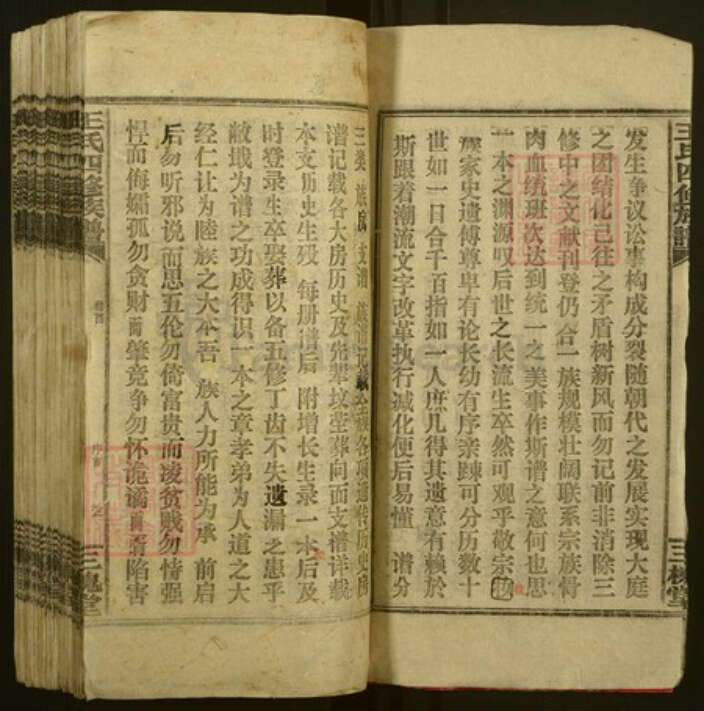 王氏四修族譜
三槐堂
发生争议讼事构成分裂随朝代之发展实现大庭
之团结化已往之矛盾树新风而勿记前非消除三
修中之文献刊登仍合一族规模壮阔联系宗族骨
肉血统班次达到统一之美事作斯谱之意何也思
一本之渊源叹后世之长流生卒然可观乎敬宗
家史遗傅尊卑有论长幼有序亲踈可分历数十
世如一日合千百指如一人庶几得其遗意有赖於
斯跟着潮流文字改革执行减化便后易懂 谱分
三类 族 支谱 族谱记载全族各项遗传历史房
谱记载各大房历史及先辈坟茔葬向面支谱详载
本支历史生殁 每册谱后 附增长生录一本后及
时登录生卒娶葬以备五修丁齿不失遗漏之患乎
敝戢为谱之功成得识一本之章孝弟为人道之大
经仁让为睦族之大本吾 族人力所能为承 前启
后勿听邪说而思五伦勿倚富贵而凌贫贱勿恃强
悍而侮孀孤勿贪财而肇竞争勿怀诡谲而胥陷害
王氏四修族譜
卷首
三槐堂